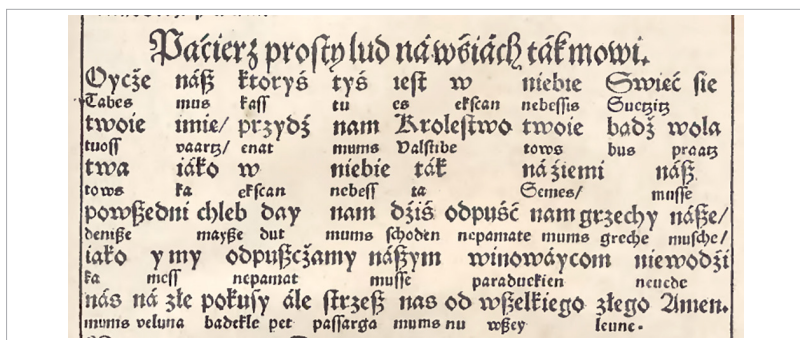 Paćierz prosty lud ná wśiách ták mowi.
Oycże náß ktoryś tyś iest w niebie Swieć sie
Tabes mus kass tu es ekscan nebessis Suetzitz
twoie imie/ przydź nam Krolestwo twoie badź wola
tuoss vaartz/ enat mums Valstibe tows bus praatz
twa iáko w niebie ták ná źiemi náß
tows ka ekscan nebess ta Semes/ musse
powßedni chleb day nam dźiś odpuść nam grzechy náße/
deniße mayße dut mums schoden nepamate mums greche musche/
iako y my odpußcżamy náßym winowáycom niewodźi
ka mess nepamat musse paraduckien neuede
nás ná złe pokusy ále strzeß nas od wßelkiego złego Amen.
mums veluna badekle pet passarga mums nu wßey leune.